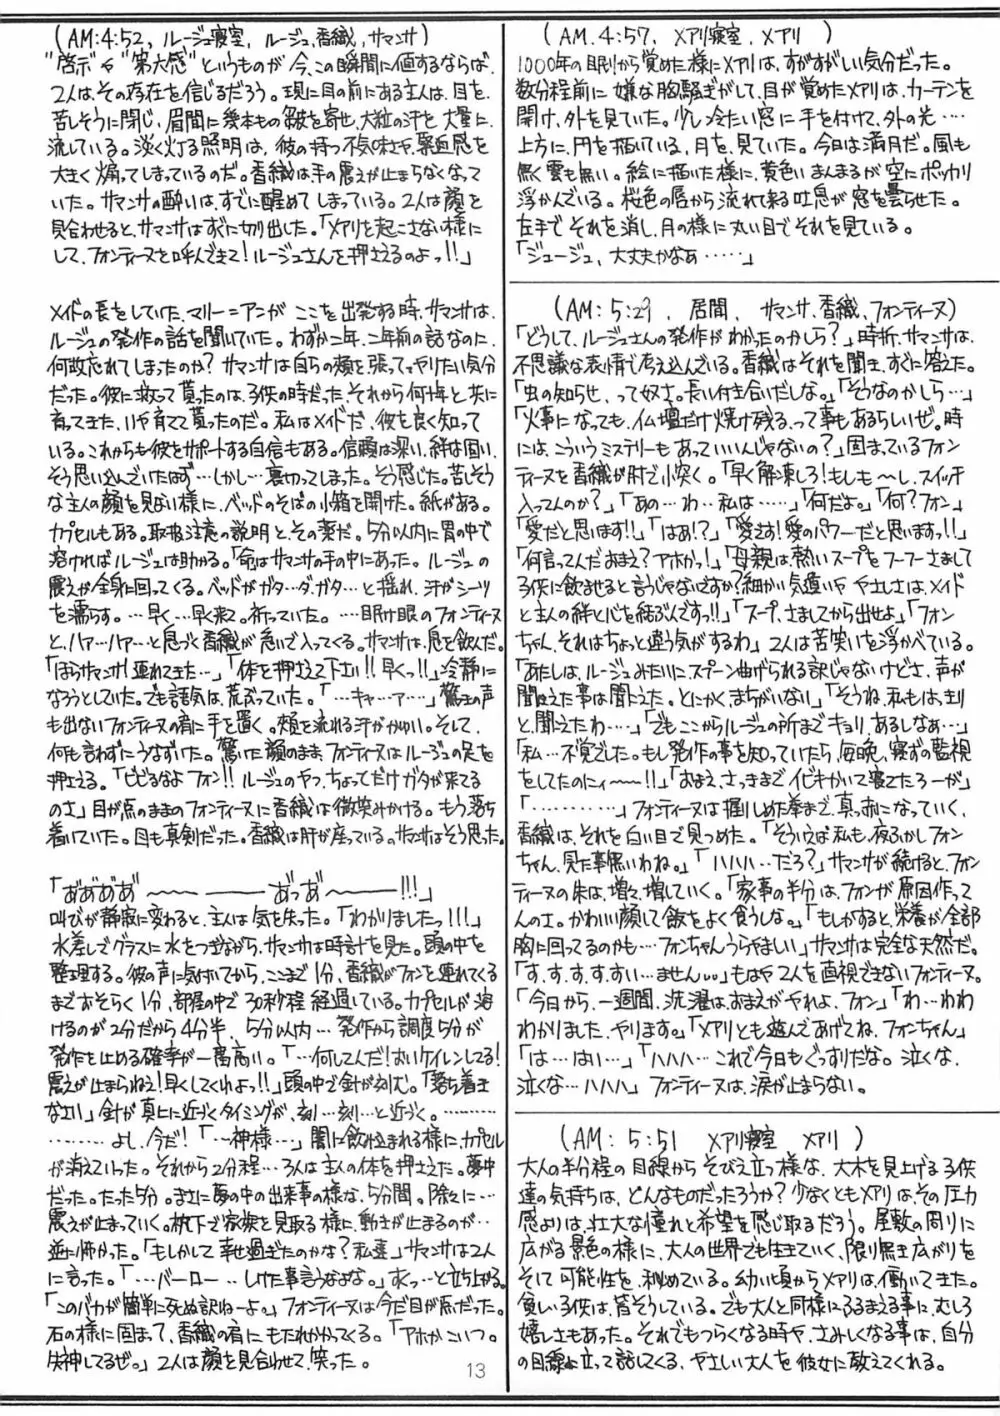 (AM:4:52, ルージュ寝室, ルージュ,香織,サマンサ)
"啓示"や"第六感"というものが今、この瞬間に値するならば、
2人は、その存在を信じるだろう。現に目の前にある主人は、目を、
苦しそうに閉じ、眉間に幾本もの皺を寄せ、大粒の汗を大量に、
流している。淡く灯る照明は、彼の持つ不気味さや、緊迫感を
大きく煽ってしまっているのだ。香織は手の震えが止まらなくなって
いた。サマンサの酔いは、すでに醒めてしまっている。2人は顔を
見合わせると、サマンサはすぐに切り出した。「メアリを起こさない様に
して、フォンティーヌを呼んできて!ルージュさんを押さえるのよっ!!」
メイドの長をしていた、マリー=アンが ここを出発する時、サマンサは、
ルージュの発作の話を聞いていた。わずか二年、二年前の話なのに、
何故忘れてしまったのか? サマンサは自らの頬を張ってやりたい気分
だった。彼に救って貰ったのは、子供の時だった、それから何十年と共に
育ってきた、いや育てて貰ったのだ。私はメイドだ、彼を良く知って
いる。これからも彼をサポートする自信もある。信頼は深い、絆は固い、
そう思い込んでいたはず…しかし…裏切ってしまった。そう感じた。苦しそう
な主人の顔を見ない様に、ベッドのそばの小箱を開けた。紙がある。
カプセルもある。取扱注意の説明と、その薬だ。5分以内に胃の中で
溶ければルージュは助かる。「命はサマンサの手の中にあった。ルージュの
震えが全身に回ってくる。ベッドがガタ…ダ、ガタ…と揺れ、汗がシーツ
を濡らす。…早く…早く来て。祈っていた。……眠け眼のフォンティーヌ
と、ハァ…ハァ…と息づく香織が急いで入ってくる。サマンサは、息を飲んだ。
「ほらサマンサ!連れてきた…」「体を押さえて下さい!!早くっ!!」冷静に
なろうとしていた。でも語気は、荒ぶっていた。「…キャ…ァ…」驚きの声
も出ないフォンティーヌの肩に手を置く。頬を流れる汗がかゆい。そして、
何も言わずにうなずいた。驚いた顔のまま、フォンティーヌはルージュの足を
押さえる。「ビビるなよフォン!!ルージュのヤツ、ちょっとだけガタが来てる
のさ」目が点のままのフォンティーヌに香織は微笑みかける。もう落ち
着いていた。目も真剣だった。香織は肝が座っている。サマンサはそう思った。
「あ゛あ゛あ゛あ゛〜〜― ―――あ゛っあ゛〜―――!!!」
叫びが静寂に変わると、主人は気を失った。「わかりましたっ!!!」
水差しでグラスに水をつぎながら、サマンサは時計を見た。頭の中を
整理する。彼の声に気付いてから、ここまで1分、香織がフォンを連れてくる
までおそらく1分、部屋の中で30秒程経過している。カプセルが溶
けるのが2分だから4分半、5分以内…発作から調度5分が
発作を止める確率が一番高い。「…何してんだ!おいケイレンしてる!
震えが止まらねえ!早くしてくれよっ!!」頭の中で針が刻む。「落ち着き
なさい」針が真上に近づくタイミングが、刻…刻…と近づく。…………
…………よし、今だ!「…神様…」闇に飲み込まれる様に、カプセル
が消えていった。それから2分程…3人は主人の体を押さえた。夢中
だった。たった5分。まさに夢の中の出来事の様な、5分間。除々に…
震えが止まっていく。枕下で家族を見取る様に、動きが止まるのが…
逆に怖かった。「もしかして幸せ過ぎたのかな?私達」サマンサは2人
に言った。「…バーロー…しけた事言うなよな。」すくっ…と立ち上がる。
「このバカが簡単に死ぬ訳ねーよ。」フォンティーヌは今だ目が点だった。
石の様に固まって、香織の肩にもたれかかってくる。「アホかこいつ。
失神してるぜ。」2人は顔を見合わせて、笑った。
(AM.4:57, メアリ寝室,メアリ )
1000年の眠りから覚めた様にメアリは、すがすがしい気分だった。
数分程前に 嫌な胸騒ぎがして、目が覚めたメアリは、カーテンを
開け、外を見ていた。少し冷たい窓に手を付けて、外の光‥‥
上方に、円を描いている、月を、見ていた。今日は満月だ。風も
無く雲も無い。絵に描いた様に、黄色いまんまるが空にポッカリ
浮かんでいる。桜色の唇から流れて来る吐息が窓を曇らせた。
左手でそれを消し、月の様に丸い目でそれを見ている。
「ジュージュ、大丈夫かなぁ‥‥‥」
(AM:5:29, 居間, サマンサ,香織,フォンティーヌ)
「どうして、ルージュさんの発作がわかったのかしら?」時折、サマンサは、
不思議な表情で考え込んでいる。香織はそれを聞き、すぐに答えた。
「虫の知らせ、って奴さ。長い付き合いだしな。」「そうなのかしら…」
「火事になっても、仏壇だけ焼け残る、って事もあるらしいぜ。時
には、こういうミステリーもあっていいんじゃないの?」固まっているフォン
ティーヌを香織が肘で小突く。「早く解凍しろ!もしも〜し、スイッチ
入ってんのか?」「あの…わ‥私は……」「何だよ。」「何?フォン」
「愛だと思います!!」「はぁ!?」「愛です!愛のパワーだと思いますっ!!」
「何言ってんだおまえ?アホかっ!」「母親は、熱いスープをフーフーさまして
子供に飲ませると言うじゃないですか?細かい気遣いややさしさは、メイド
と主人の絆と心を結ぶんです!!」「スープ、さましてから出せよ。」「フォン
ちゃん、それはちょっと違う気がするわ」2人は苦笑いを浮かべている。
「あたしは、ルージュみたいに、スプーン曲げられる訳じゃないけどさ、声が
聞こえた事は聞こえた。とにかく、まちがいない」「そうね、私もはっきり
と、聞こえたわ…」「でもここからルージュの所までキョリ、あるしなぁ…」
「私…不覚でした。もし発作の事を知っていたら、毎晩、寝ずの監視
をしてたのにィ〜―!!」「おまえ、さっきまでイビキかいて寝てたろーが」
「…………」フォンティーヌは握りしめた拳まで、真っ赤になっていく、
香織は、それを白い目で見つめた。「そういえば私も、夜ふかしフォン
ちゃん、見た事無いわね。」「ハハハ‥だろ?」サマンサが続けると、フォン
ティーヌの朱は、増々、増していく。「家事の半分は、フォンが原因作って
んのさ。かわいい顔して飯をよく食うしな。」「もしかすると、栄養が全部
胸に回ってるのかも…フォンちゃんうらやましい」サマンサは完全な天然だ。
「す、す、す、す、すい…ません。。」もはや2人を直視できないフォンティーヌ。
「今日から、一週間、洗濯は、おまえがやれよ、フォン」「わ…わわわ
わかりました、やります。」「メアリとも遊んであげてね、フォンちゃん」
「は…はい…」「ハハハ…これで今日もぐっすりだな。泣くな、
泣くな…ハハハ」フォンティーヌは、涙が止まらない。
(AM: 5:51 メアリ寝室 メアリ )
大人の半分程の目線からそびえ立つ様な、大木を見上げる子供
達の気持ちは、どんなものだったろうか?少なくともメアリは、その圧力
感よりは、壮大な憧れと希望を感じ取るだろう。屋敷の周りに
広がる景色の様に、大人の世界でも生きていく、限り無き広がりを
そして可能性を、秘めている。幼い頃からメアリは、働いてきた。
貧しい子供は、皆そうしている。でも大人と同様にふるまえる事に、むしろ
嬉しさもあった。それでもつらくなる時や、さみしくなる事は、自分
の目線に立って話してくる、やさしい大人を彼女に教えてくれる。
13